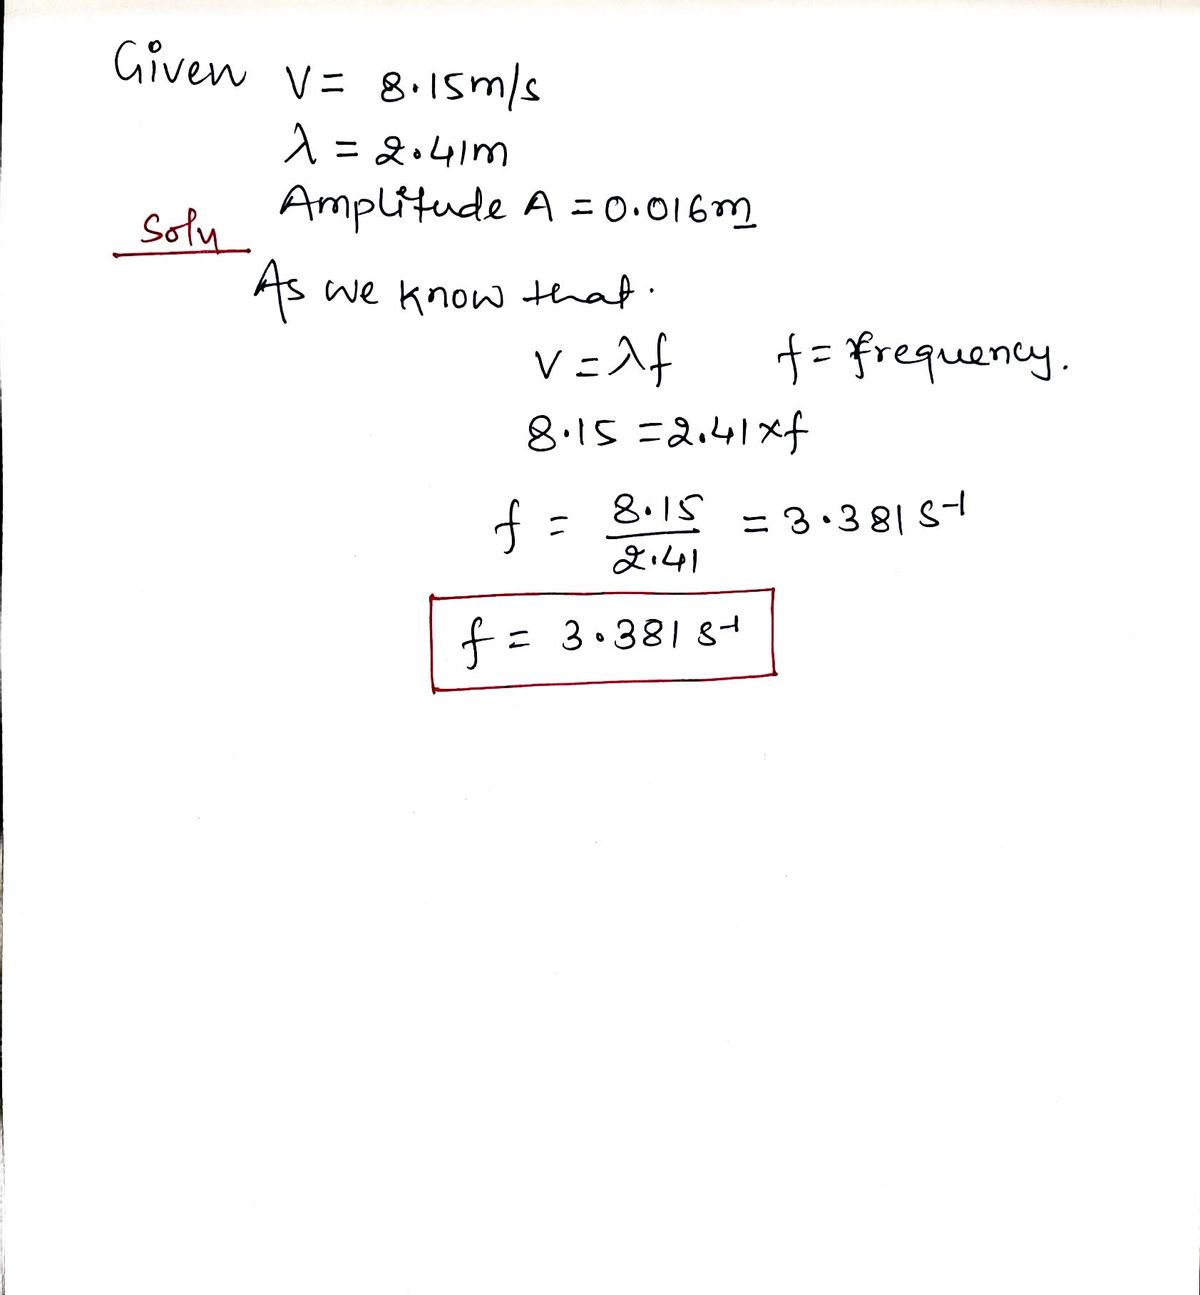 Given V = 8.15m/s
λ = 2.41m
Amplitude A = 0.016m
Soln
As we know that.
V = λf f = frequency.
8.15 = 2.41 × f
f = 8.15/2.41 = 3.381 S-1
f = 3.381 S-1